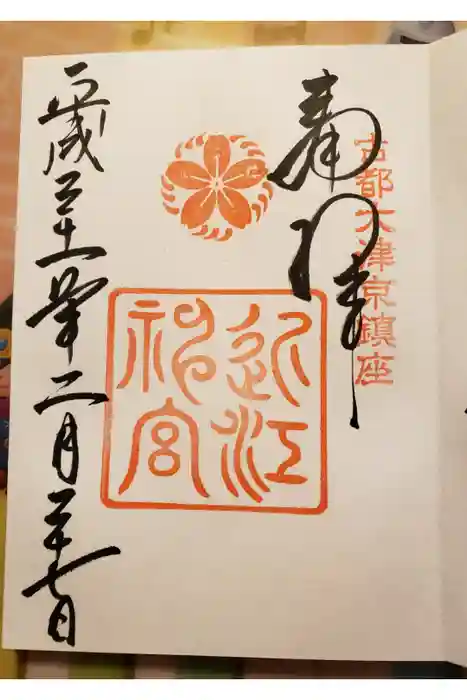 古都大津京鎮座
奉拝
近江
神宮
平成三十一年二月二十七日